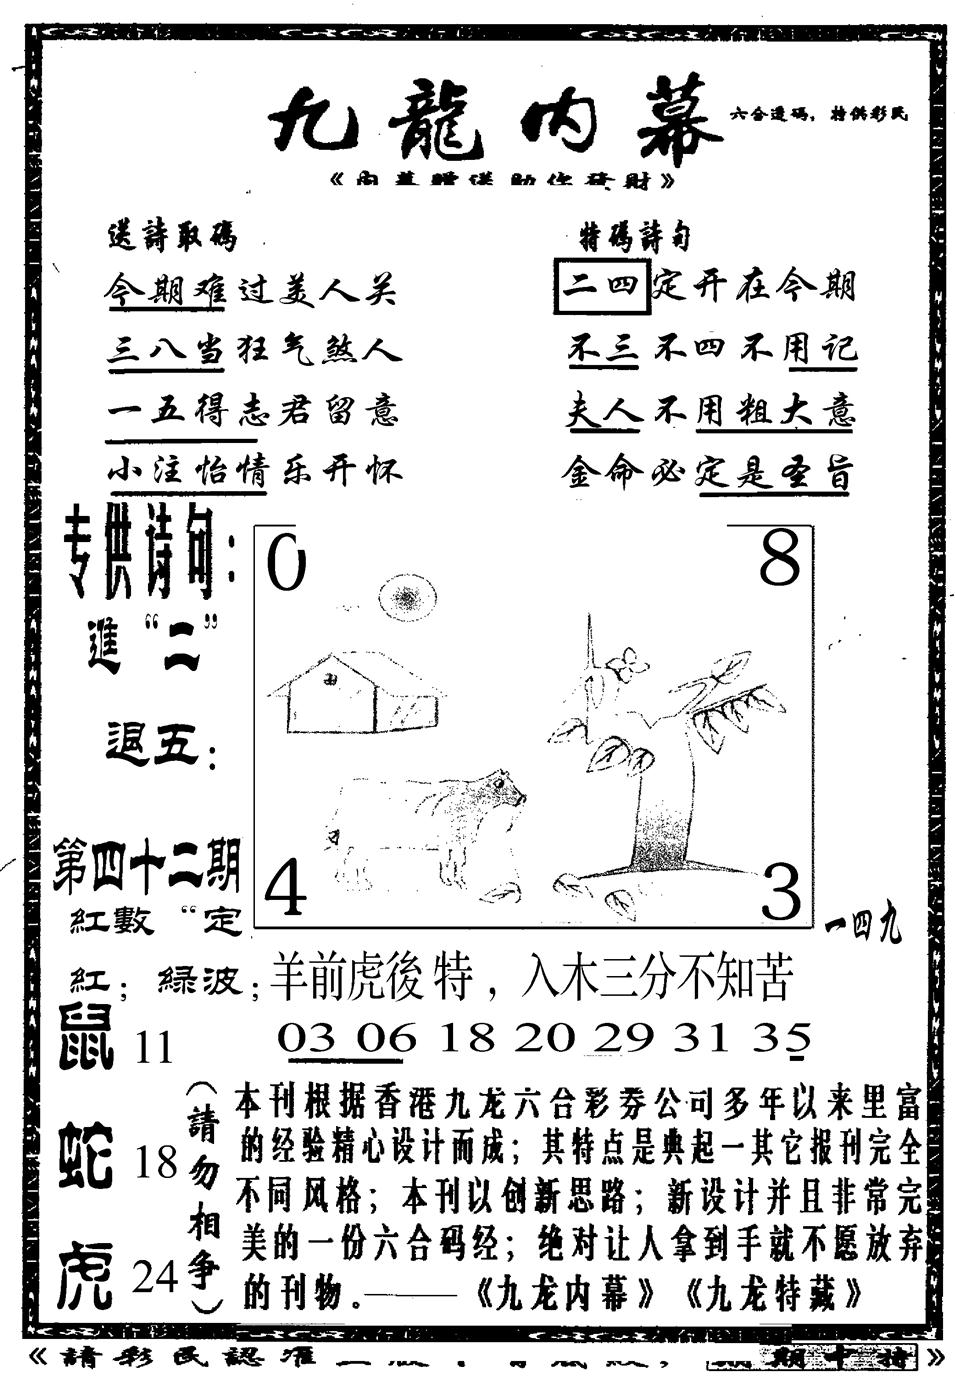 九龍内幕
六合透码，特供彩民
《内幕贈送助你發財》
送詩取碼
今期难过美人关
三八当狂气煞人
一五得志君留意
小注怡情乐开怀
特碼詩句
二四定开在今期
不三不四不用记
夫人不用粗大意
金命必定是圣旨
专供诗句：
進“二”
退五：
第四十二期
紅數“定
紅；綠波；
0
8
4
3
一四九
羊前虎後特，入木三分不知苦
03 06 18 20 29 31 35
鼠 11
蛇 18
虎 24
（請勿相争）
本刊根据香港九龙六合彩券公司多年以来里富
的经验精心设计而成；其特点是典起一其它报刊完全
不同风格；本刊以创新思路；新设计并且非常完
美的一份六合码经；绝对让人拿到手就不愿放弃
的刊物。———《九龙内幕》《九龙特藏》
《請彩民認准
期十特》